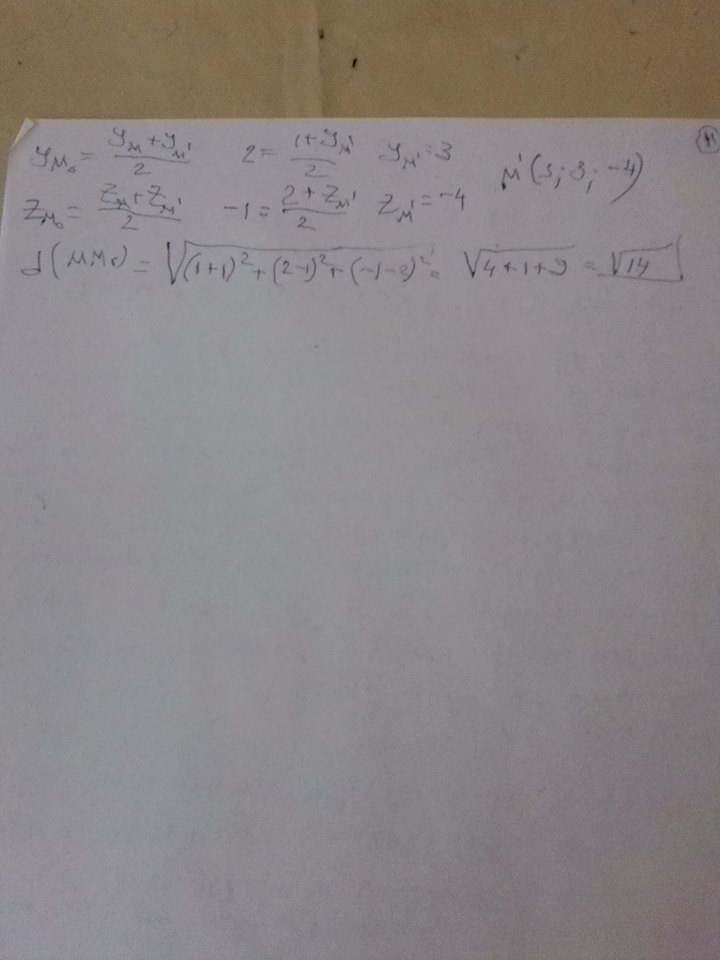 y_{M₀} = \frac{y_M + y_{M'}}{2}   2 = \frac{1 + y_{M'}}{2}   y_{M'} = 3   M'(3; 3; -4)
z_{M₀} = \frac{z_M + z_{M'}}{2}   -1 = \frac{2 + z_{M'}}{2}   z_{M'} = -4
d(MM₀) = \sqrt{(1+1)^2 + (2-1)^2 + (-1-2)^2} = \sqrt{4+1+9} = \sqrt{14}